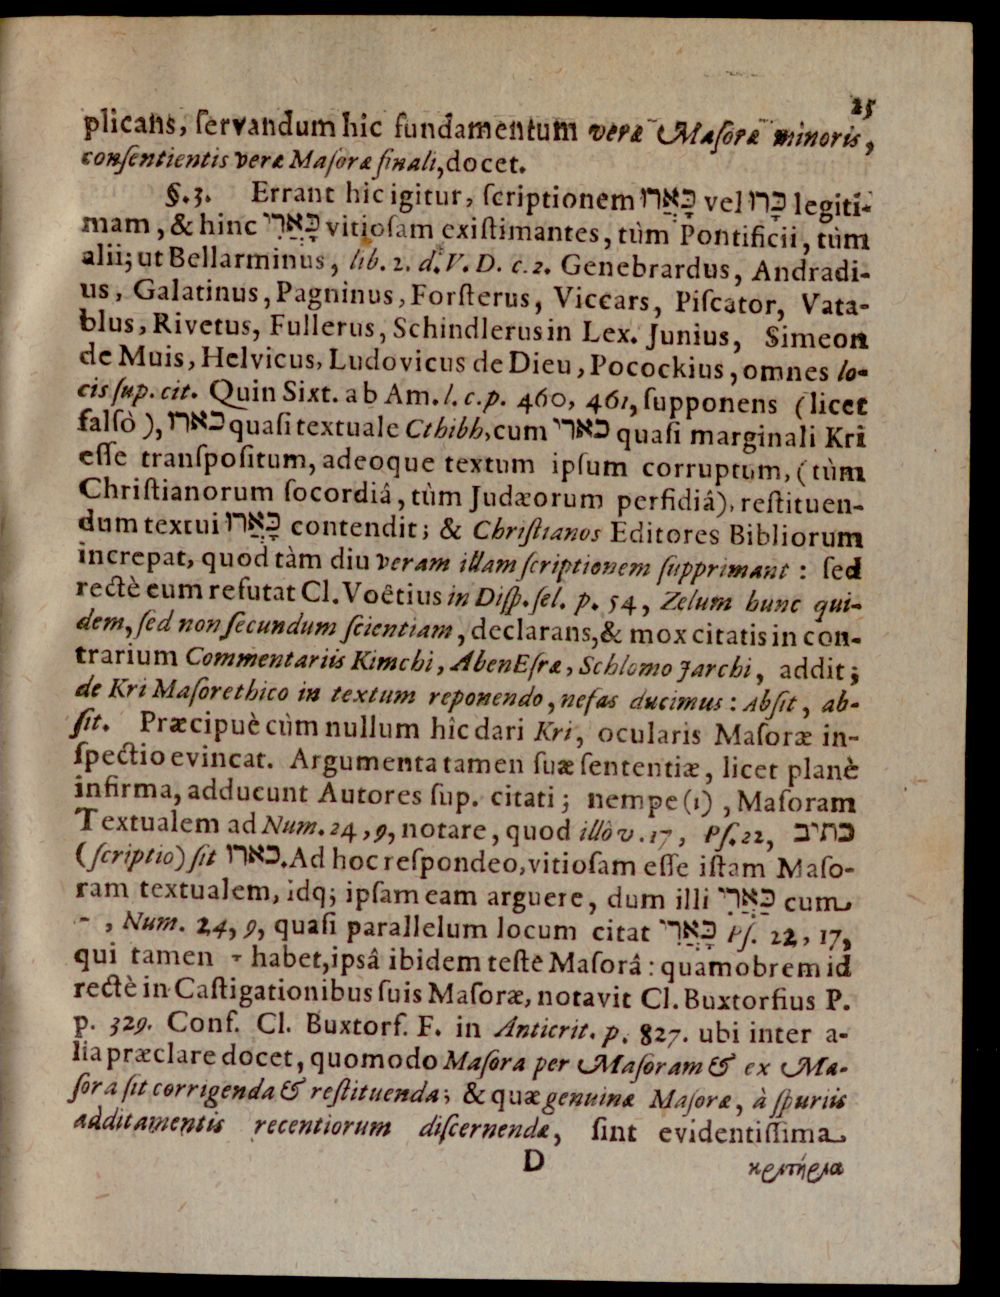 25
plicans, ſervandum hîc fundamentum veræ Maſoræ minoris,
conſentientis veræ Maſoræ finali, docet.
§. 3. Errant hic igitur, ſcriptionem כָּאֲרוּ vel כָּרוּ legiti-
mam, & hinc כָּאֲרִי vitioſam exiſtimantes, tùm Pontificii, tùm
alii; ut Bellarminus, lib. 2. d. V. D. c. 2. Genebrardus, Andradi-
us, Galatinus, Pagninus, Forſterus, Viccars, Piſcator, Vata-
blus, Rivetus, Fullerus, Schindlerus in Lex. Junius, Simeon
de Muis, Helvicus, Ludovicus de Dieu, Pocockius, omnes lo-
cis ſup. cit. Quin Sixt. ab Am. l. c. p. 460, 461, ſupponens (licet
falſò), כארו quaſi textuale Cthibh, cum כארי quaſi marginali Kri
eſſe tranſpoſitum, adeoque textum ipſum corruptum, (tùm
Chriſtianorum ſocordiâ, tùm Judæorum perfidiâ), reſtituen-
dum textui כָּאֲרוּ contendit; & Chriſtianos Editores Bibliorum
increpat, quod tàm diu veram illam ſcriptionem ſupprimant : ſed
rectè eum refutat Cl. Voêtius in Diſp. ſel. p. 54, Zelum hunc qui-
dem, ſed non ſecundum ſcientiam, declarans, & mox citatis in con-
trarium Commentariis Kimchi, AbenEſræ, Schlomo Jarchi, addit;
de Kri Maſorethico in textum reponendo, nefas ducimus : Abſit, ab-
ſit. Præcipuè cùm nullum hîc dari Kri, ocularis Maſoræ in-
ſpectio evincat. Argumenta tamen ſuæ ſententiæ, licet planè
infirma, adducunt Autores ſup. citati; nempe (1), Maſoram
Textualem ad Num. 24, 9, notare, quod illo v. 17, Pſ. 22, כתיב
(ſcriptio) ſit כארו. Ad hoc reſpondeo, vitioſam eſſe iſtam Maſo-
ram textualem, idq; ipſam eam arguere, dum illi כַּאֲרִי cum
-, Num. 24, 9, quaſi parallelum locum citat כָּאֲרִי Pſ. 22, 17,
qui tamen ָ habet, ipsâ ibidem teſte Maſorâ : quamobrem id
rectè in Caſtigationibus ſuis Maſoræ, notavit Cl. Buxtorfius P.
p. 329. Conf. Cl. Buxtorf. F. in Anticrit. p. 827. ubi inter a-
lia præclare docet, quomodo Maſora per Maſoram & ex Ma-
ſora ſit corrigenda & reſtituenda; & quæ genuinæ Maſoræ, à ſpuriis
additamentis recentiorum diſcernendæ, ſint evidentiſſima
D κριτήρια